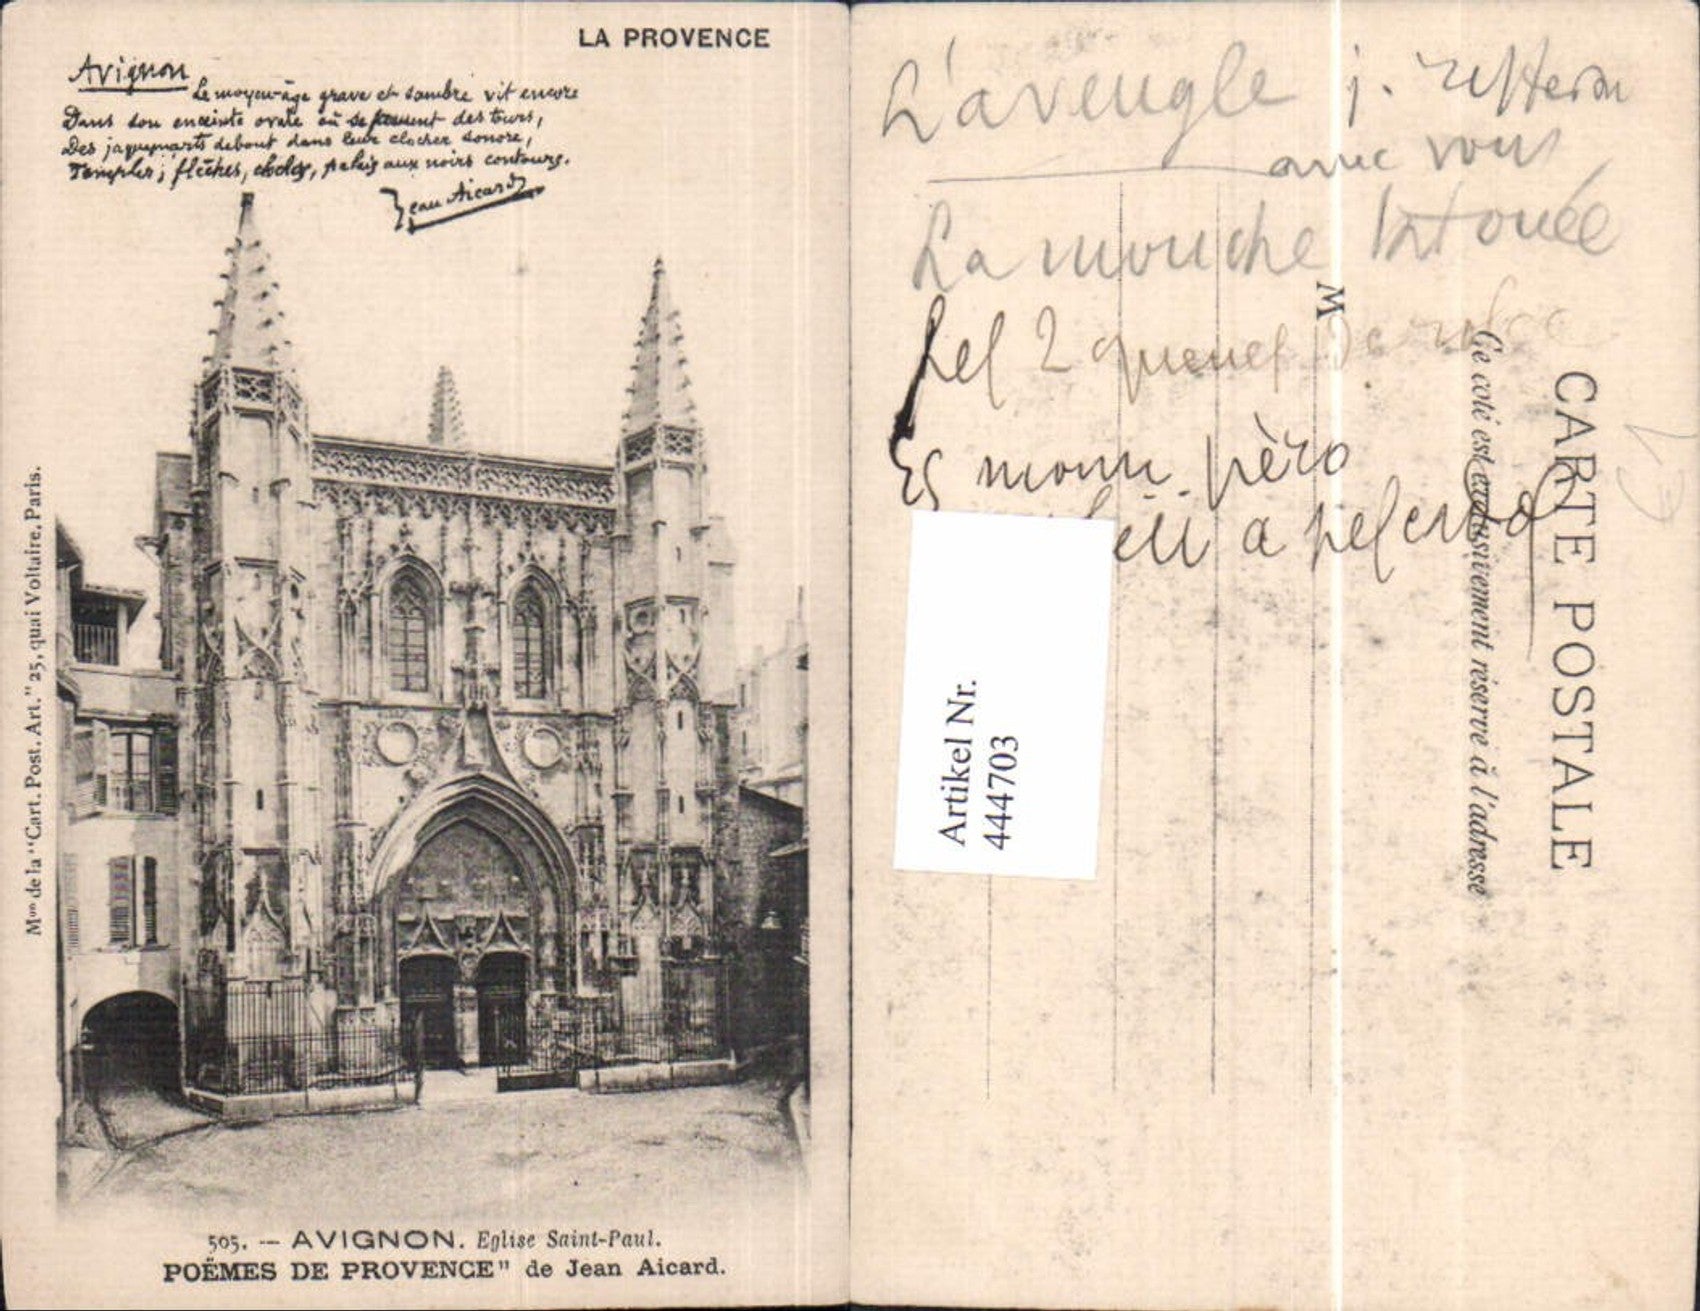 LA PROVENCE
Avignon
Le moyen-âge grave et sombre vit encore
Dans son enceinte ovale où se pament des tours,
Des jaquemarts debout dans leur clocher sonore,
Temples, flèches, palais aux noirs contours.
Jean Aicard
Mon de la "Cart. Post. Art." 25, quai Voltaire. Paris.
505. — AVIGNON. Eglise Saint-Paul.
POËMES DE PROVENCE" de Jean Aicard.
L'aveugle j.
avec vous
La mouche
Lel 2
père
a
M
Ce coté est exclusivement réservé à l'adresse
CARTE POSTALE
Artikel Nr.
444703